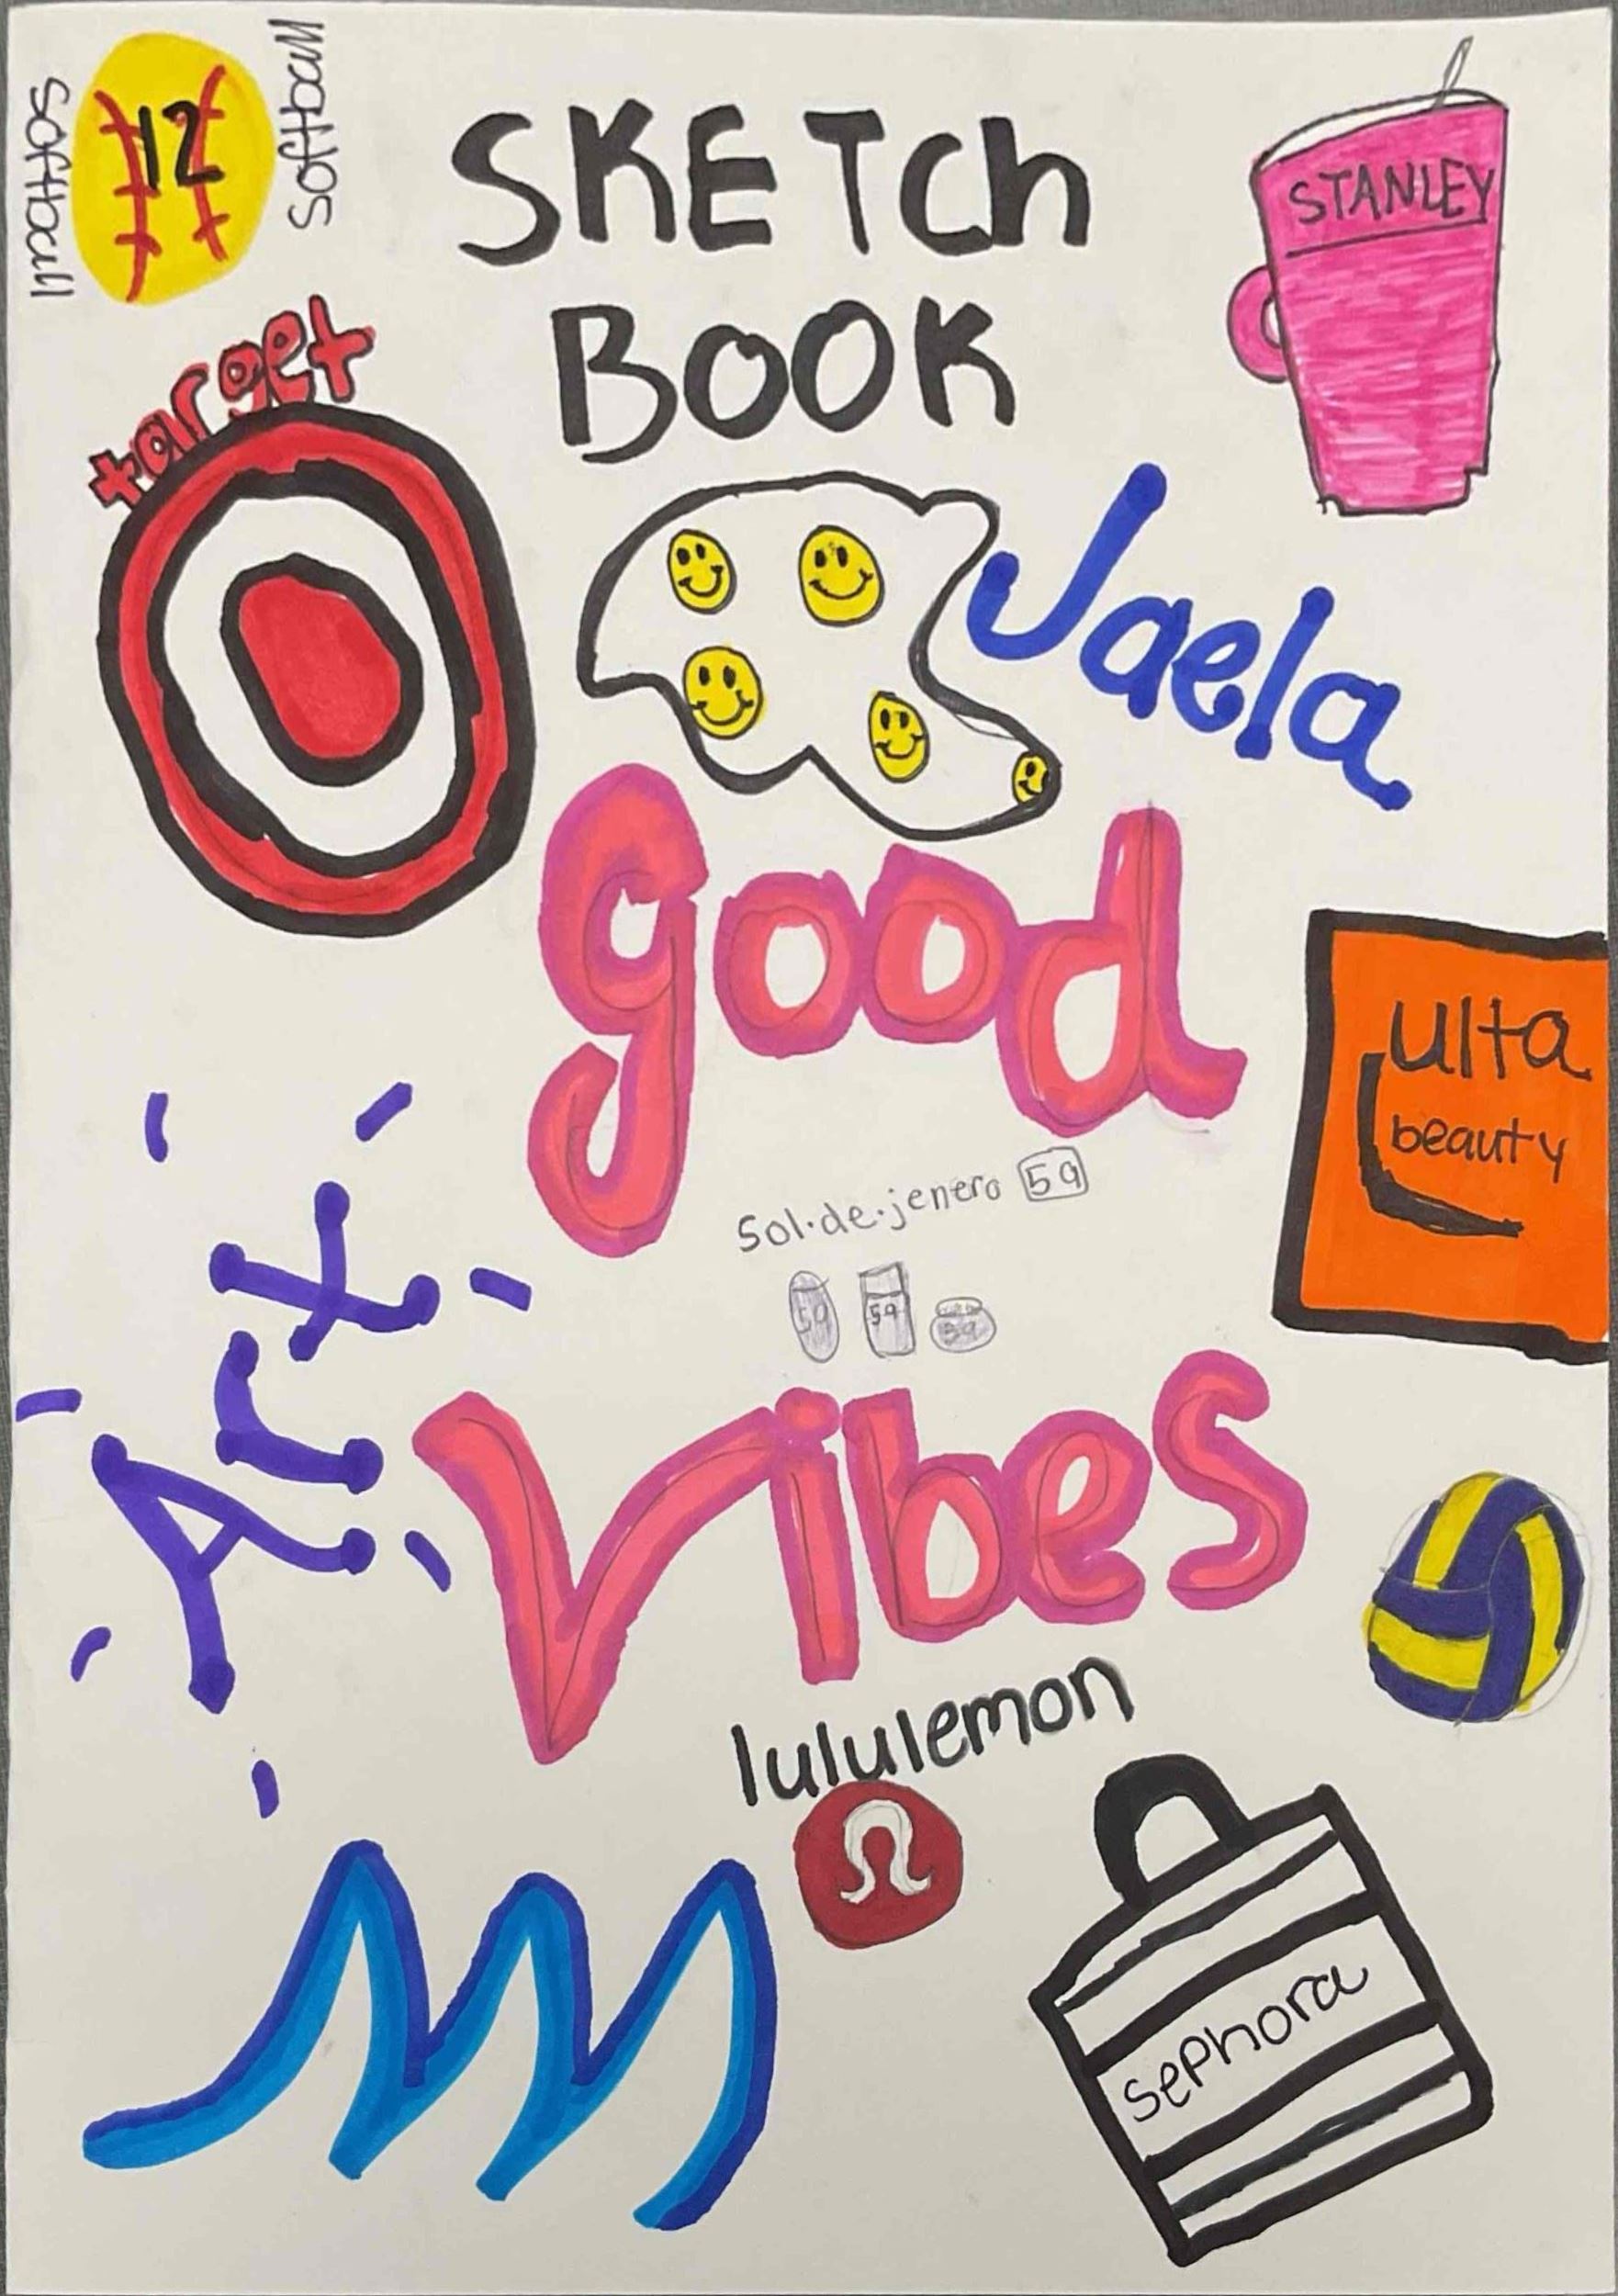 Softball
12
Softball
SKETch
BOOK
STANLEY
target
Jaela
good
ulta
beauty
Sol·de·jenero 59
59
59
59
Art
Vibes
lululemon
sephora